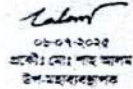 ০৮-০৭-২০২৫
প্রকৌঃ মোঃ শাহ আলম
উপ-মহাব্যবস্থাপক